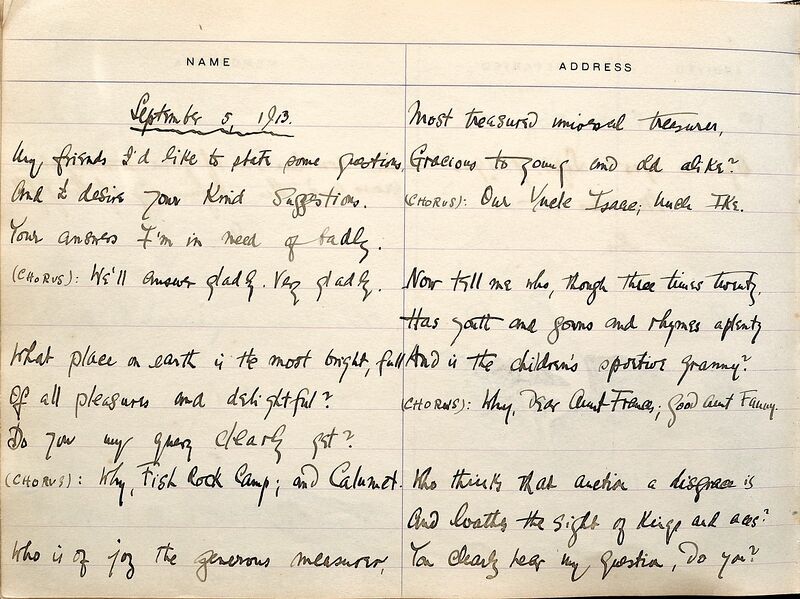 NAME
September 5, 1913.
My friends I'd like to state some questions,
And I desire your Kind Suggestions.
Your answers I'm in need of badly.
(CHORUS): We'll answer gladly. Very gladly.
What place on earth is the most bright, full
Of all pleasures and delightful?
Do you my query clearly get?
(CHORUS): Why, Fish Rock Camp; and Calumet.
Who is of joy the generous measurer,
ADDRESS
Most treasured universal treasurer,
Gracious to young and old alike?
(CHORUS): Our Uncle Isaac; Uncle Ike.
Now tell me who, though three times twenty,
Has youth and and rhymes aplenty
And is the children's sportive granny?
(CHORUS): Why, Dear Aunt Frances; good Aunt Fanny.
Who thinks that auction a disgrace is
And loathes the sight of Kings and aces?
You clearly hear my question, Do you?